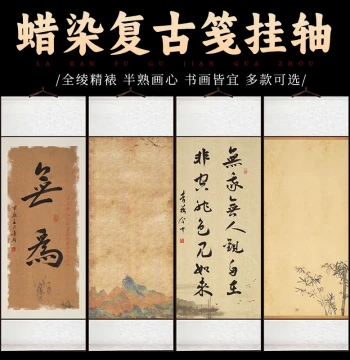 蜡染复古笺挂轴
LA RAN FU GU JIAN GUA ZHOU
/全绫精裱 半熟画心 书画皆宜 多款可选/
無為
無我無人觀自在
非空非色見如来